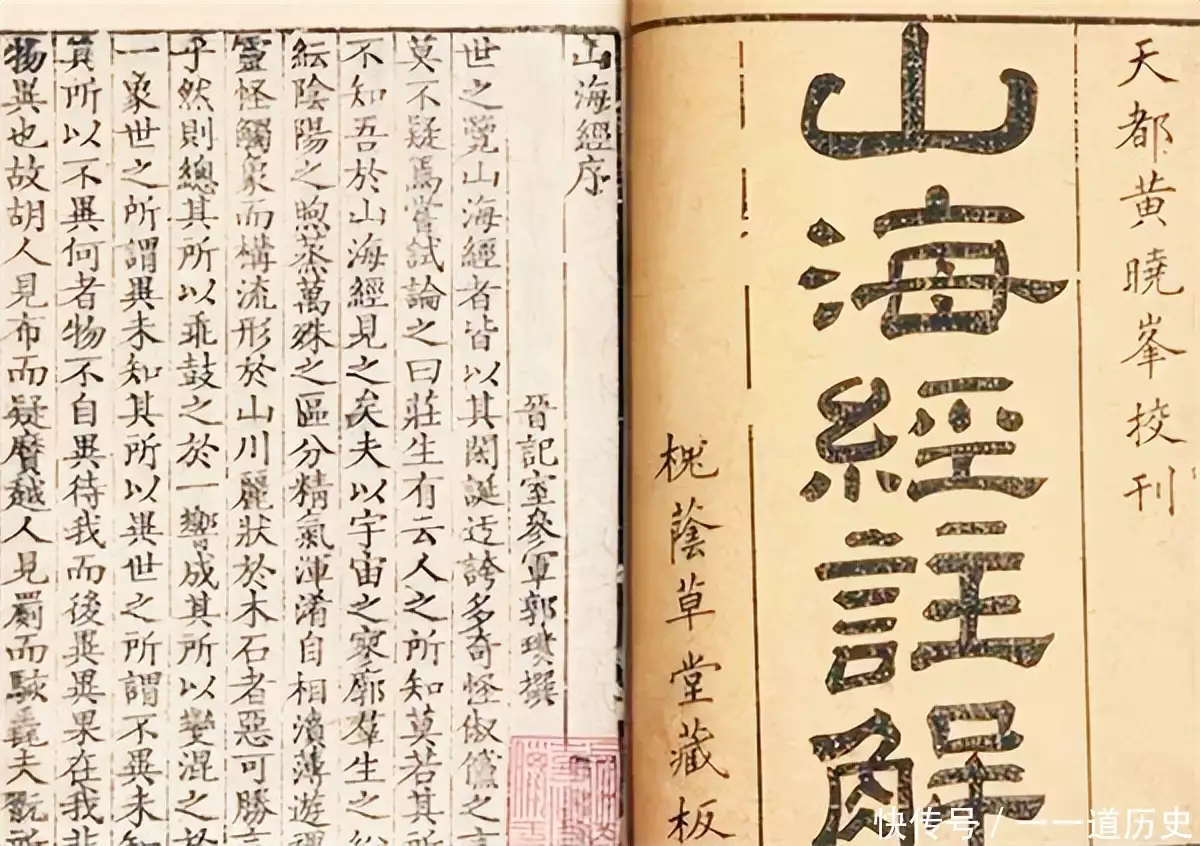 天都黄曉峯校刊
山海經註解
槐蔭草堂藏板
山海經序
晉記室參軍郭璞撰
世之覽山海經者皆以其閎誕迂誇多奇怪俶儻之言
莫不疑焉嘗試論之曰莊生有云人之所知莫若其所
不知吾於山海經見之矣夫以宇宙之寥廓羣生之紛
紜陰陽之煦蒸萬殊之區分精氣渾淆自相濆薄遊
靈怪觸象而構流形於山川麗狀於木石者惡可勝言
乎然則總其所以乖鼓之於一響成其所以變混之於
一象世之所謂異未知其所以異世之所謂不異未知
其所以不異何者物不自異待我而後異異果在我非
物異也故胡人見布而疑黂越人見罽而駭毳夫翫所
快传号 / 一一道历史